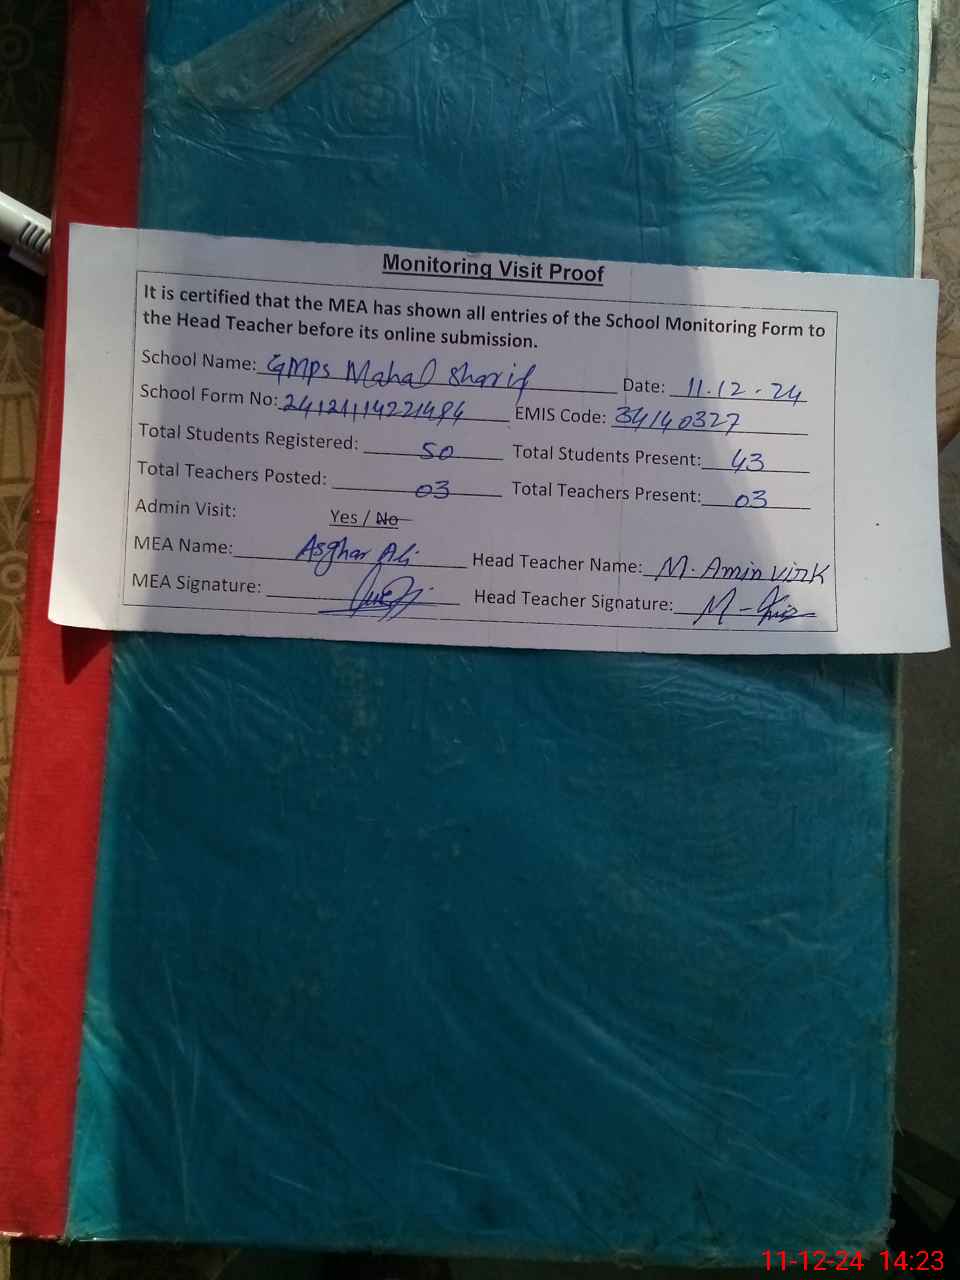 Monitoring Visit Proof
It is certified that the MEA has shown all entries of the School Monitoring Form to
the Head Teacher before its online submission.
School Name: GMPS Mahal Sharif Date: 11.12.24
School Form No: EMIS Code: 34140327
Total Students Registered: 50 Total Students Present: 43
Total Teachers Posted: 03 Total Teachers Present: 03
Admin Visit: Yes / No
MEA Name: Asghar Ali Head Teacher Name: M. Amin virk
MEA Signature: Head Teacher Signature:
11-12-24 14:23